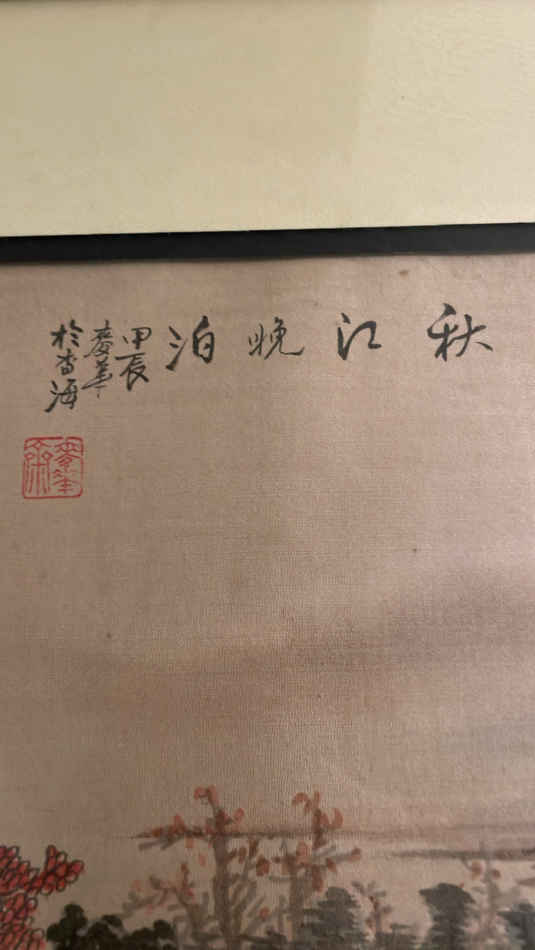 秋江晚泊
甲辰
麦華
於香海